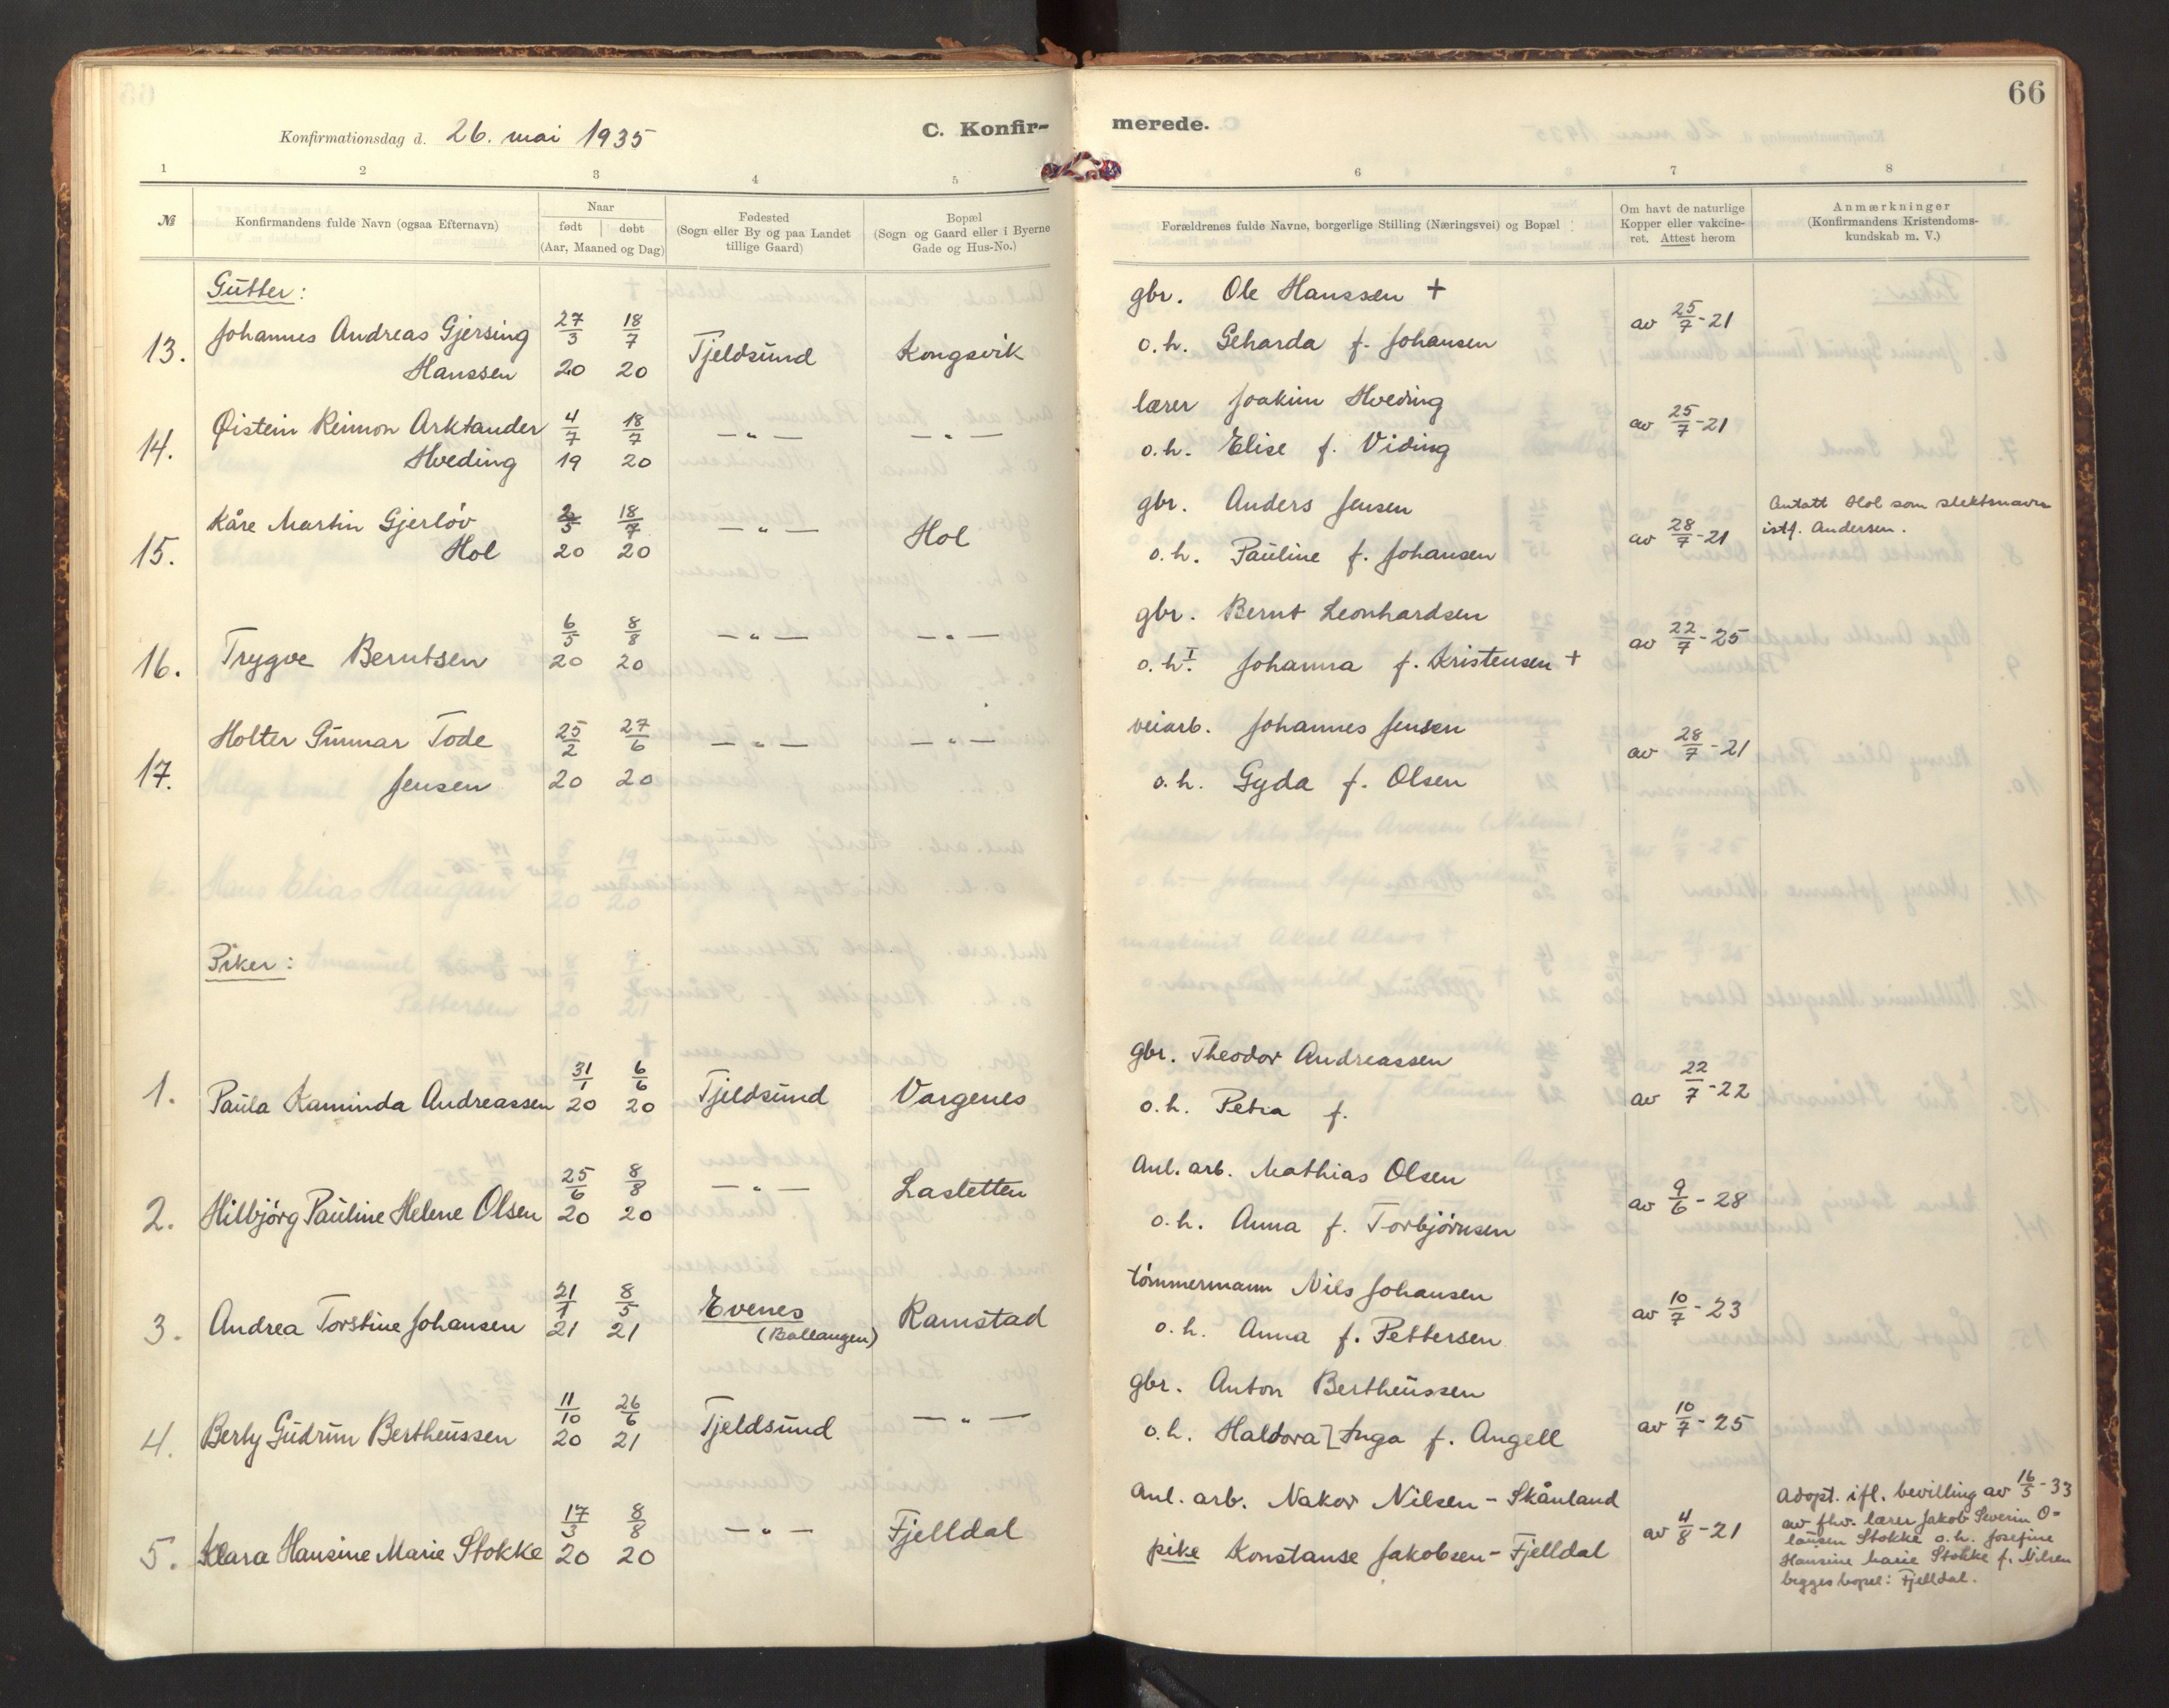 66
Konfirmationsdag d. 26. mai 1935
C. Konfir-
merede.
1 2 3 4 5 6 7 8
№
Konfirmandens fulde Navn (ogsaa Efternavn)
Naar
født døbt
(Aar, Maaned og Dag)
Fødested
(Sogn eller By og paa Landet
tillige Gaard)
Bopæl
(Sogn og Gaard eller i Byerne
Gade og Hus-No.)
Forældrenes fulde Navne, borgerlige Stilling (Næringsvei) og Bopæl
Om havt de naturlige
Kopper eller vakcine-
ret. Attest herom
Anmærkninger
(Konfirmandens Kristendoms-
kundskab m. V.)
Gutter:
13. Johannes Andreas Gjersing 27/3 18/7 Tjeldsund Kongsvik gbr. Ole Hanssen + av 25/7-21
Hanssen 20 20 o.h. Geharda f. Johansen
14. Øistein Reimon Arktander 4/7 18/7 — " — — " — lærer Joakim Hveding av 25/7-21
Hveding 19 20 o.h. Elise f. Viding
15. Kåre Martin Gjerløv 2/5 18/7 — " — Hol gbr. Anders Jensen av 28/7-21 Antatt Hol som slektsnavn
Hol 20 20 o.h. Pauline f. Johansen istf. Andersen.
16. Trygve Berntsen 6/5 8/8 — " — — " — gbr. Bernt Leonhardsen av 22/7-25
20 20 o.h I Johanna f. Kristensen +
17. Holter Gunnar Tode 25/2 27/6 — " — — " — veiarb. Johannes Jensen av 28/7-21
Jensen 20 20 o.h. Gyda f. Olsen
Piker:
1. Paula Kaminda Andreassen 31/1 20 6/6 20 Tjeldsund Vargenes gbr. Theodor Andreassen av 22/7-22
o.h. Petra f.
2. Hilbjörg Pauline Helene Olsen 25/6 20 8/8 20 — " — Lasletten Anl. arb. Mathias Olsen av 9/6-28
o.h. Anna f. Torbjörnsen
3. Andrea Torstine Johansen 21/1 21 8/5 21 Evenes Ramstad tömmermann Nils Johansen av 10/7-23
(Ballangen) o.h. Anna f. Pettersen
4. Berly Gudrun Bertheussen 11/10 20 26/6 21 Tjeldsund — " — gbr. Anton Bertheussen av 10/7-25
o.h. Haldora] Inga f. Angell
5. Klara Hansine Marie Stokke 17/3 20 8/8 20 — " — Fjelldal anl. arb. Nakor Nilsen - Skånland av 4/8-21
pike Konstanse Jakobsen - Fjelldal
Adopt. ifl. bevilling av 16/5-33
av fhv. lærer Jakob Severin O-
lausen Stokke o.h. Josefine
Hansine Marie Stokke f. Nilsen
begges bopel: Fjelldal.